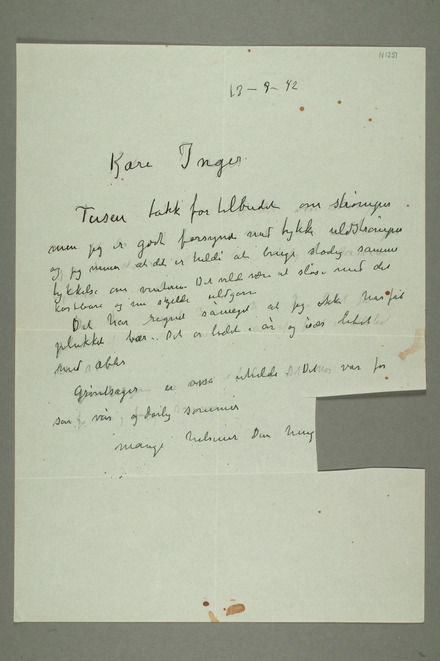 N1251
13-9-42
Kære Inger.
Tusen takk for tilbudet om strømper
men jeg er godt forsynet med tykke uldstrømper
og jeg mener at det er heldi at bruge stadig samme
tykkelse om vinteren. Det vilde være at sløse med det
kostbare og nu sjeldne uldgarn
Det har regnet saameget at jeg ikke har fåt
plukket bær. Det er lidet i år og især lidet
med æbler
Grøntsager er også Det var for
sen vår og daarlig sommer
mange hilsener Din